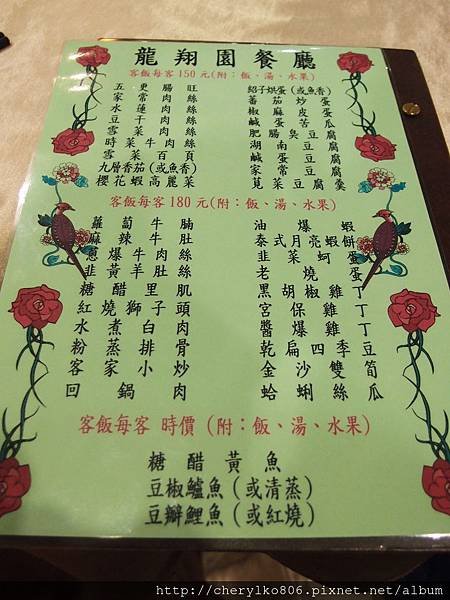 龍翔園餐廳
客飯每客150元(附：飯、湯、水果)
五更腸旺
家常肉絲
水蓮肉絲
豆干肉絲
雪菜肉絲
時菜牛肉絲
雪菜百頁
九層香茄(或魚香)
櫻花蝦高麗菜
紹子烘蛋(或魚香)
蕃茄炒蛋
椒麻皮蛋
鹹蛋苦瓜
肥腸臭豆腐
湖南蛋豆腐
鹹家常豆腐
莧菜豆腐羹
客飯每客180元(附：飯、湯、水果)
蘿蔔牛腩
麻辣牛肚
蔥爆牛肉絲
韭黃羊肚絲
糖醋里肌
紅燒獅子頭
水煮白肉
粉蒸排骨
客家小炒
回鍋肉
油爆蝦
泰式月亮蝦餅
韭菜蚵蛋
老燒蛋
黑胡椒雞丁
宮保雞丁
醬爆雞丁
乾扁四季豆
金沙筍
蛤蜊雙絲瓜
客飯每客 時價(附：飯、湯、水果)
糖醋黃魚
豆椒鱸魚(或清蒸)
豆瓣鯉魚(或紅燒)
http://cherylko806.pixnet.net/album